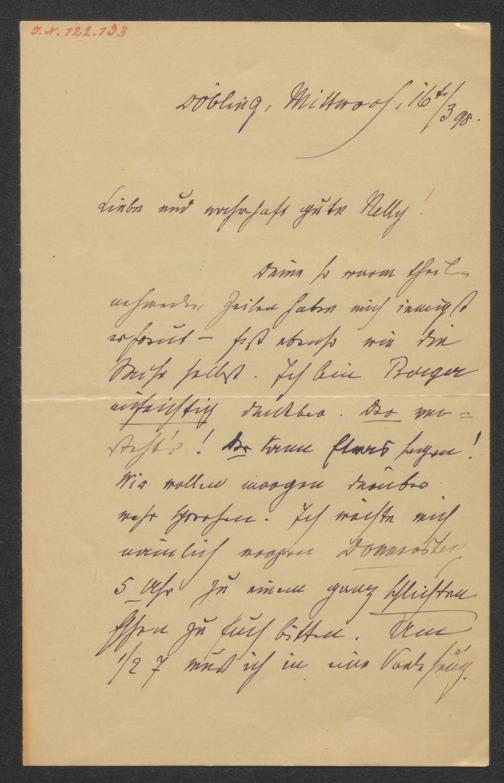 I. N. 122.133
Döbling, Mittwoch, 16t/3 98.
Liebe und wahrhaft gute Nelly!
Deine so warm theil-
nehmenden Zeilen haben mich innigst
erfreut – fast ebenso wie die
Sache selbst. Ich bin Berger
aufrichtig dankbar. Der ver=
steht's! Der kann Etwas sagen!
Wir wollen morgen darüber
mehr sprechen. Ich möchte mich
nämlich morgen Donnerstag
5 Uhr zu einem ganz schlichten
Essen zu Euch bitten. Um
1/2 7 muß ich in eine Vorlesung.